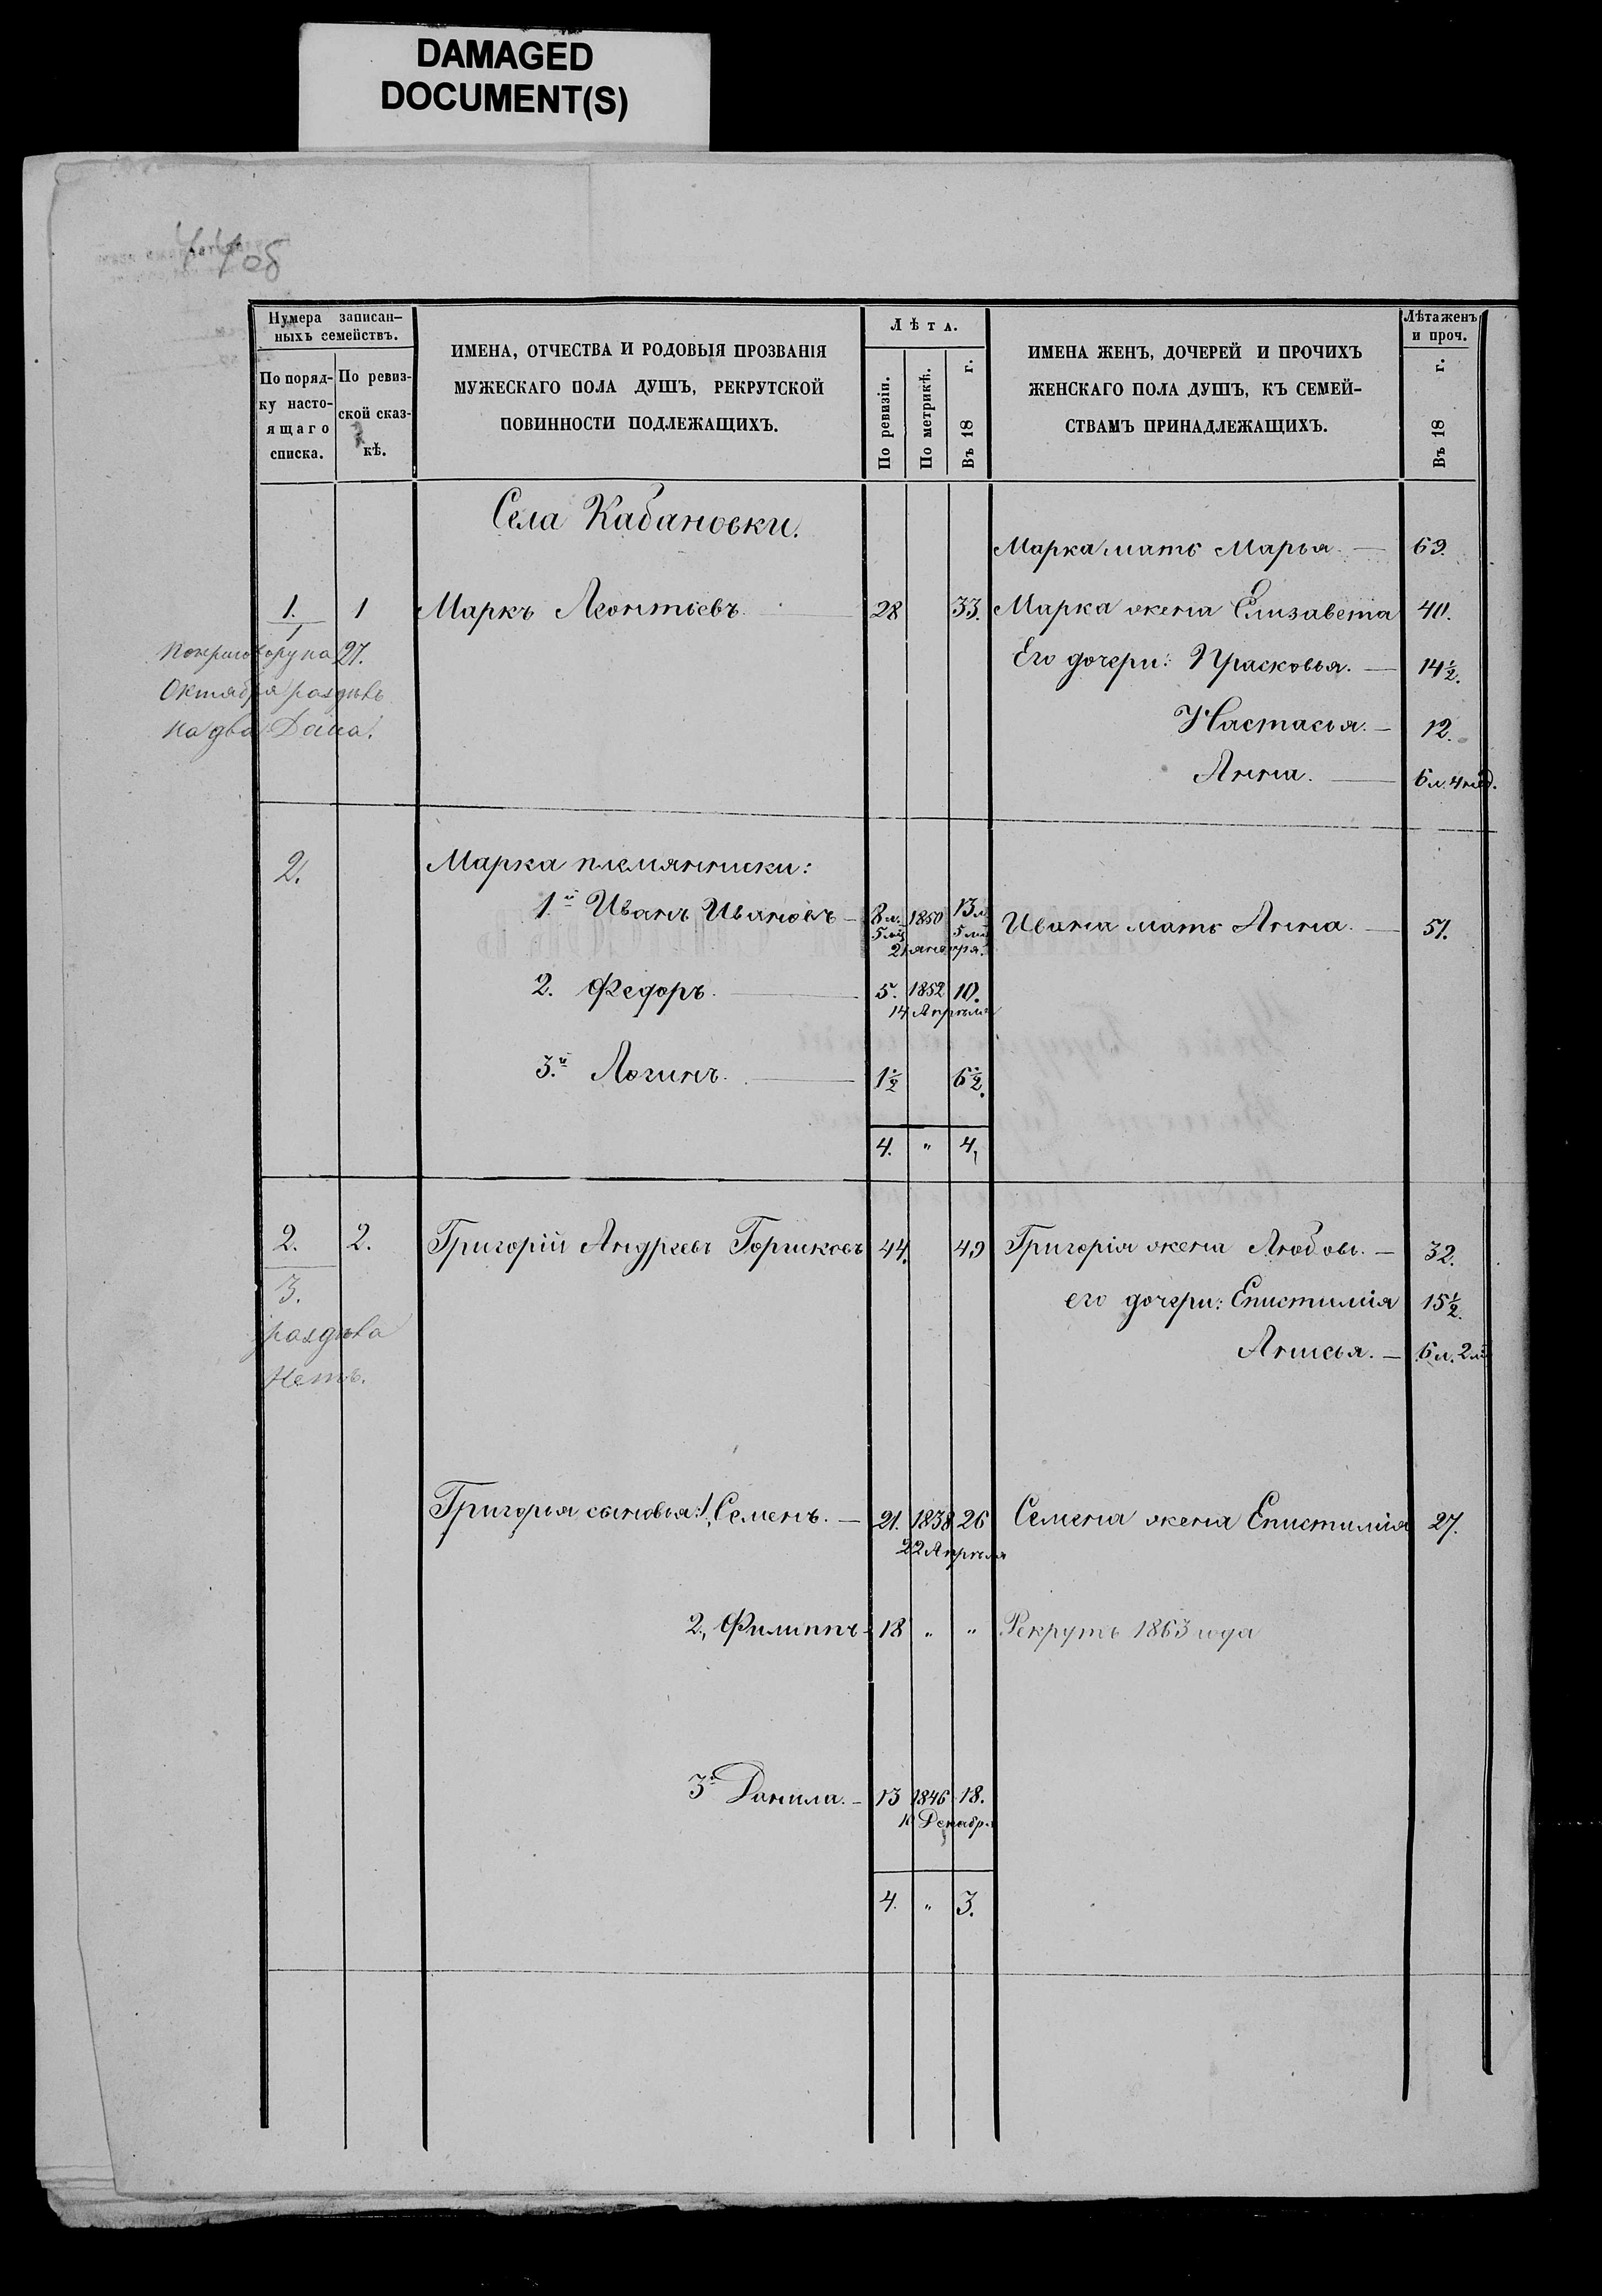 DAMAGED
DOCUMENT(S)
Нумера записан-
ныхъ семействъ.
По поряд-
ку насто-
ящаго
списка.
По ревиз-
ской сказ-
кѣ.
ИМЕНА, ОТЧЕСТВА И РОДОВЫЯ ПРОЗВАНІЯ
МУЖЕСКАГО ПОЛА ДУШЪ, РЕКРУТСКОЙ
ПОВИННОСТИ ПОДЛЕЖАЩИХЪ.
Лѣта.
По ревизіи.
По метрикѣ.
Въ 18 г.
ИМЕНА ЖЕНЪ, ДОЧЕРЕЙ И ПРОЧИХЪ
ЖЕНСКАГО ПОЛА ДУШЪ, КЪ СЕМЕЙ-
СТВАМЪ ПРИНАДЛЕЖАЩИХЪ.
Лѣта женъ
и проч.
Въ 18 г.
Села Кабановки.
Марка мать Марья. — 69.
1. 1 Маркъ Леонтьевъ 28 33. Марка жена Елизавета 40.
1
По приговору на 27.
Октября раздѣлъ
на два Дома.
Его дочери: Прасковья. — 14½.
Настасья. — 12.
Анна. — 6 л. 4 нед.
2. Марка племянники:
1й Иванъ Ивановъ — 8 л. 5 мц 1850 13 л. 5 мц Ивана мать Анна. — 51.
21 января.
2. Федоръ. — 5. 1852 10.
14 Апрѣля
3.й Логинъ. — 1½ 6½.
4. " 4,
2. 2. Григорій Андреевъ Горшковъ 44. 49 Григорія жена Любовь. — 32.
3.
раздѣла
Нетъ.
его дочери: Епистимія 15½.
Анисья. — 6 л. 2 мц
Григорья сыновья: 1, Семенъ. — 21. 1838 26 Семена жена Епистимія 27.
22 Апрѣля
2., Филиппъ — 18 " " Рекрутъ 1863 года
3й Данила. — 13 1846 18.
10 Декабря
4. " 3.